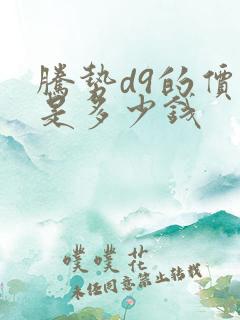 騰勢d9的價
是多少錢
噗噗花
未经同意禁止转载